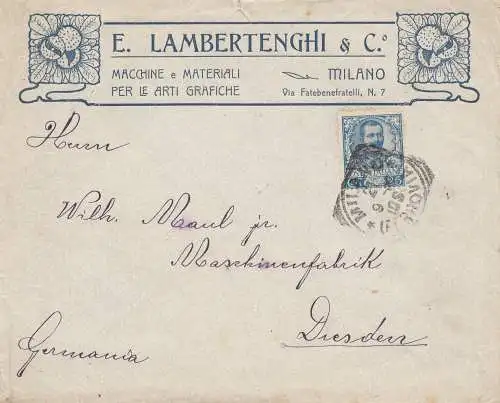 E. LAMBERTENGHI & C.º
MACCHINE e MATERIALI
PER LE ARTI GRAFICHE
MILANO
Via Fatebenefratelli, N. 7
Herrn
Wilh. Maul jr.
Maschinenfabrik
Dresden
Germania